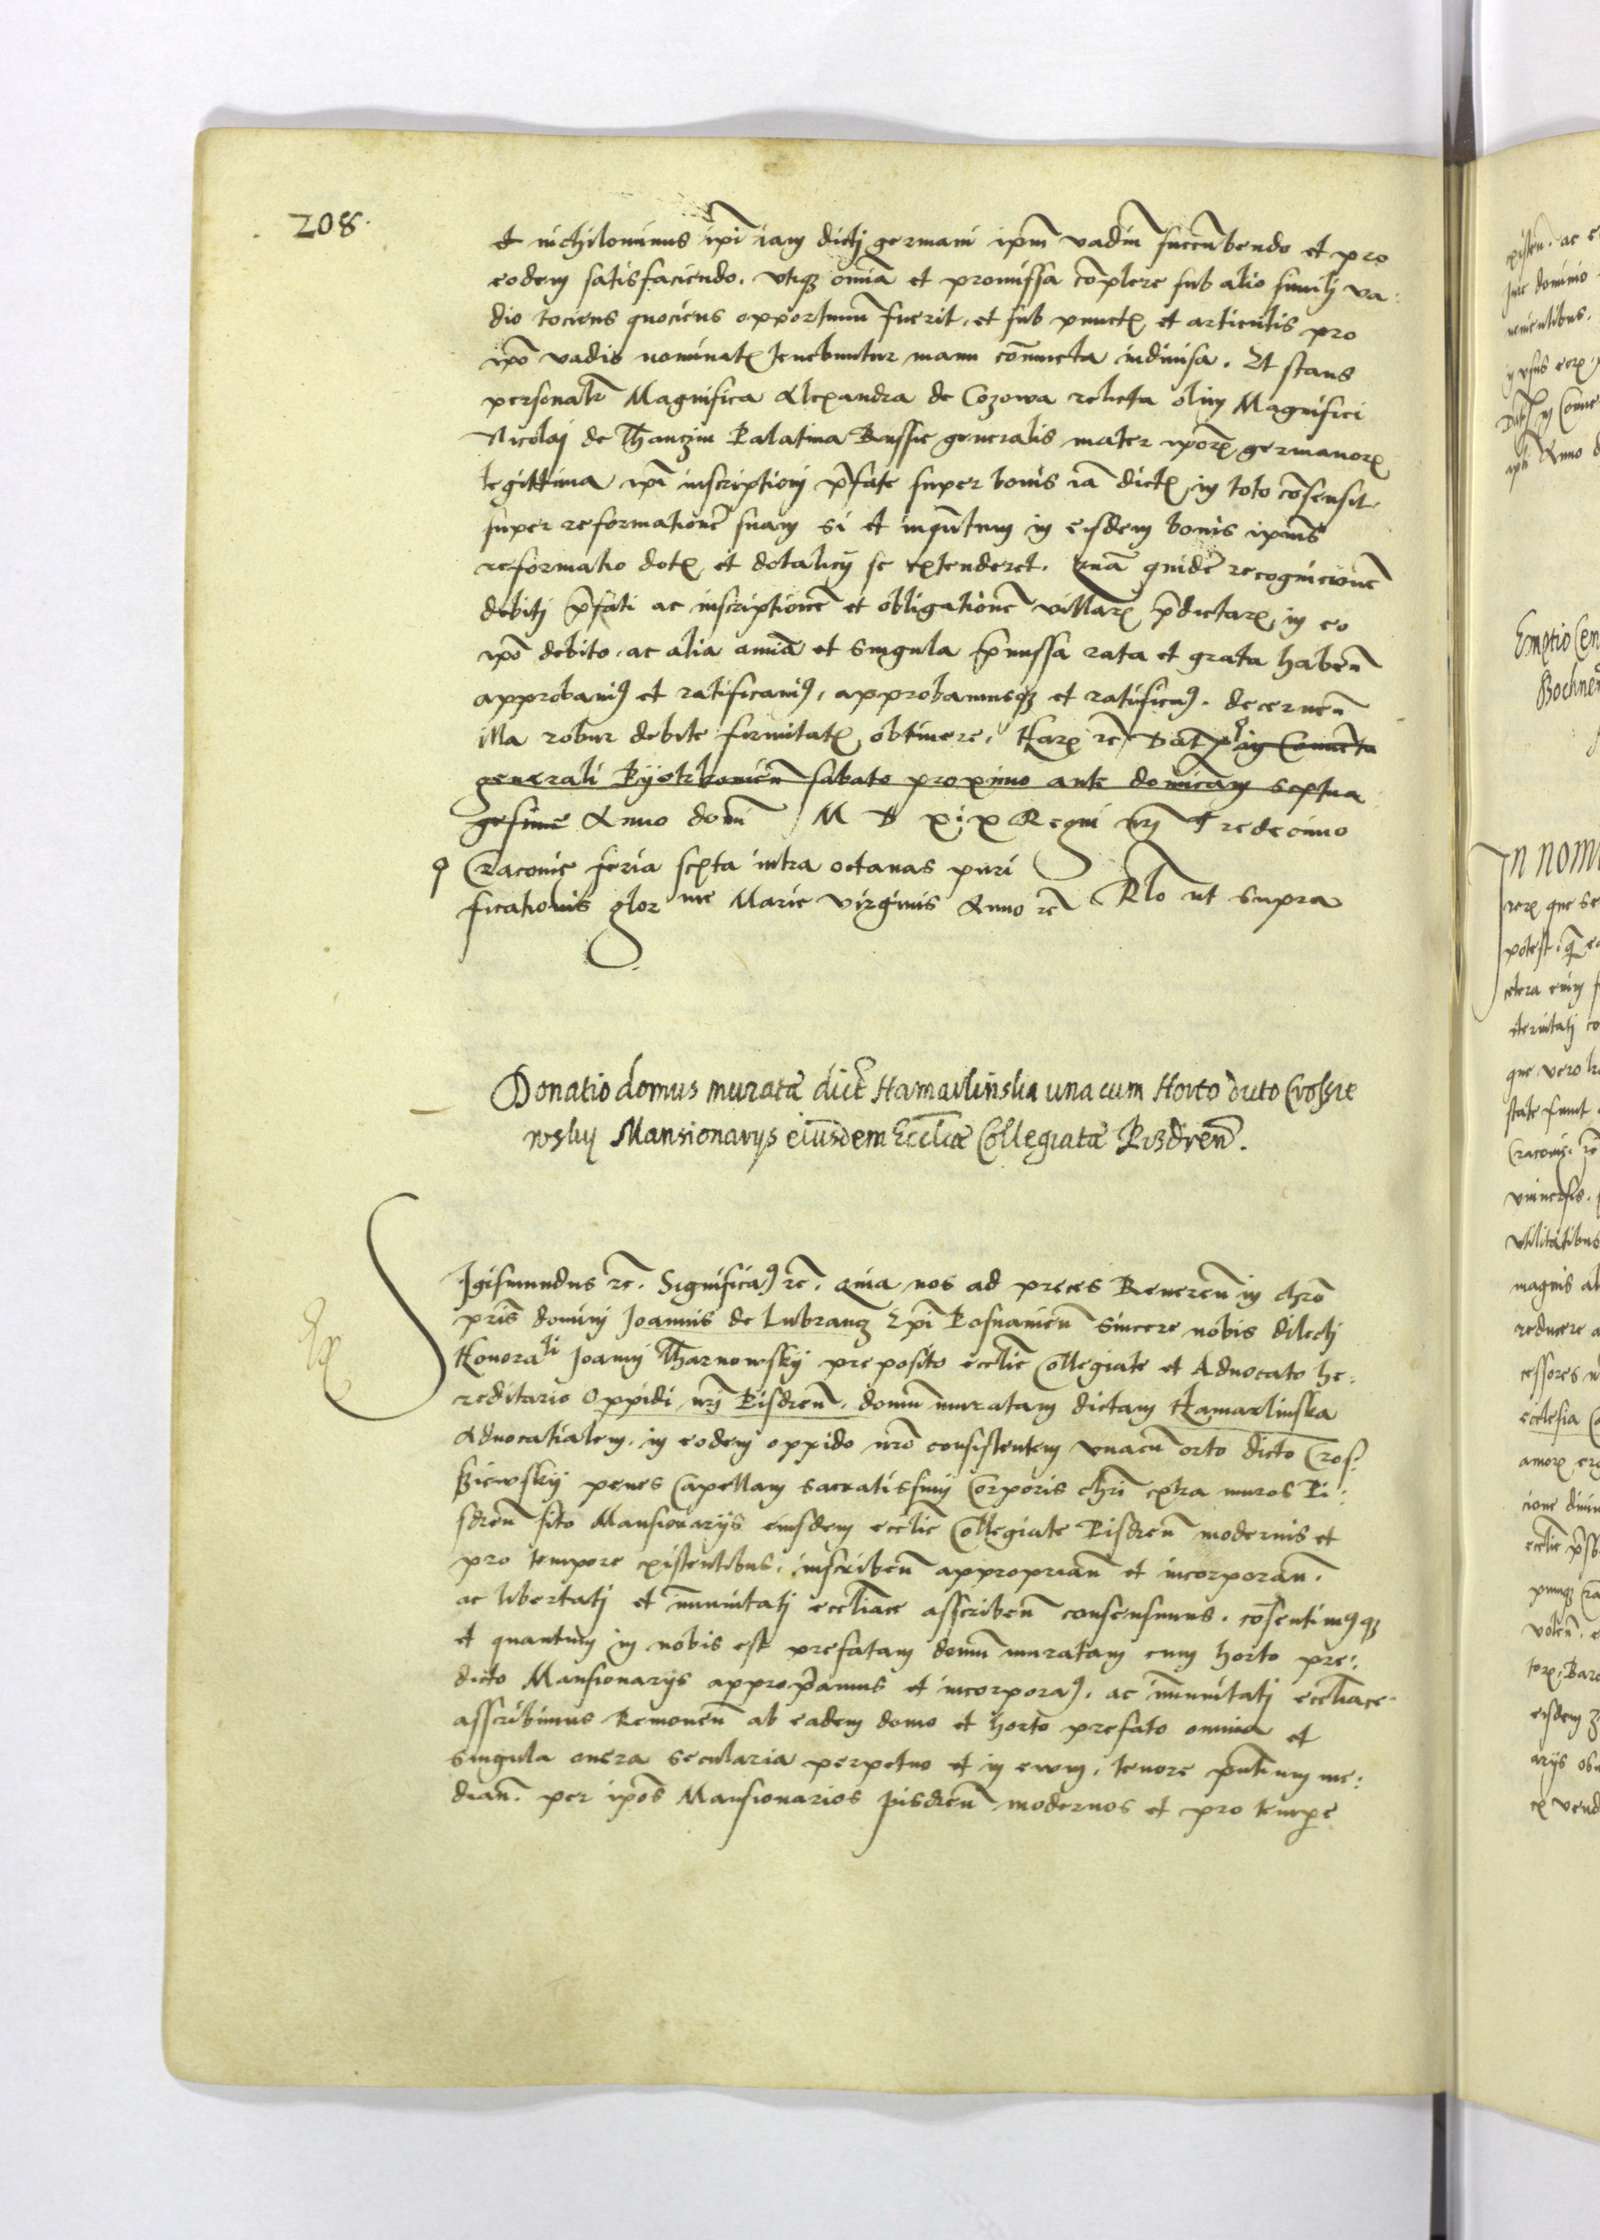 208.
et nichilominus ipi iam dictj germani ipm vadiu succubendo et pro
eodem satisfaciendo. vtiqz omia et promissa coplere sub alio similj va:
dio tociens quociens opportunu fuerit, et sub punctis et articulis pro
ipo vadio nominatis tenebuntur manu coniuncta indiuisa. Et stans
personalr Magnifica Alexandra de Cozowa relicta olim Magnifici
Nicolaj de Thanczin Palatina Russie generalis mater iporz germanorz
legittima ipi inscriptionj pfate super bonis ia dictis in toto cosensit
super reformatione suam si et inqutum in eisdem bonis ipius
reformatio dotis et dotalicij se extenderet. Qua quide recognicione
debitj pfati ac inscriptione et obligatione villarz pdictarz in eo
ipo debito. ac alia omia et singula pmissa rata et grata haben
approbauim9 et ratificauim9, approbamusqz et ratificam9. decernen
illa robur debite firmitatis obtinere. Harz rc Dat in Conuentu
generali Pyotrkouien sabato proximo ante domicam septua
gesime Anno domi M D xix Regni nri Tredecimo
Cracouie feria sexta intra octauas puri
ficationis glor me Marie virginis Anno rc Rlo ut supra
Donatio domus muratæ dict Hamarlinska una cum Horto dicto Crossie
wskij Mansionarijs eiusdem Eccliæ Collegiatæ Pizdren.
Sigismundus rc. Significa9 rc. Quia nos ad preces Reueren in chro
pris dominj Joannis de Lubrancz Epi Posnanien sincere nobis dilectj
Honoralj Joannj Tharnowskij preposito ecclie Collegiate et Aduocato he:
reditario Oppidi nri Pisdren. domu muratam dictam Hamarlinska
Aduocatialem. in eodem oppido nro consistentem vnacu orto dicto Cros:
siewskij penes Capellam sacratissimj Corporis chri extra muros Pi:
sdren sito Mansionarijs eiusdem ecclie Collegiate Pisdren modernis et
pro tempore existentibus. inscriben approprian et incorporan.
ac libertatj et imunitatj eccliace asscriben consensimus. cosentim9qz
et quantum in nobis est prefatam domu muratam cum horto pre:
dicto Mansionarijs appropiamus et incorpora9. ac imunitatj eccliace
asscribimus Remouen ab eadem domo et horto prefato omnia et
singula onera secularia perpetuo et in ewm. tenore pntium me:
dian. per ipos Mansionarios Pisdren modernos et pro tempe